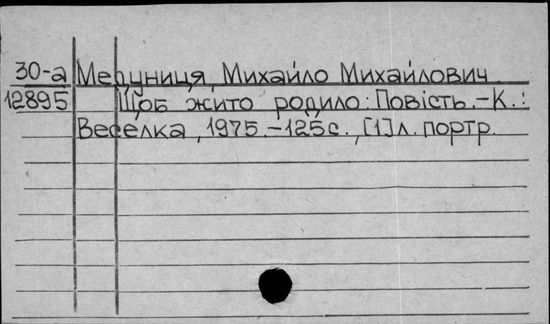 30-а Мегуниця, Михайло Михайлович.
12895 Щоб жито родило: Повість.-К.:
Веселка, 1975.-125с., [1]л. портр.